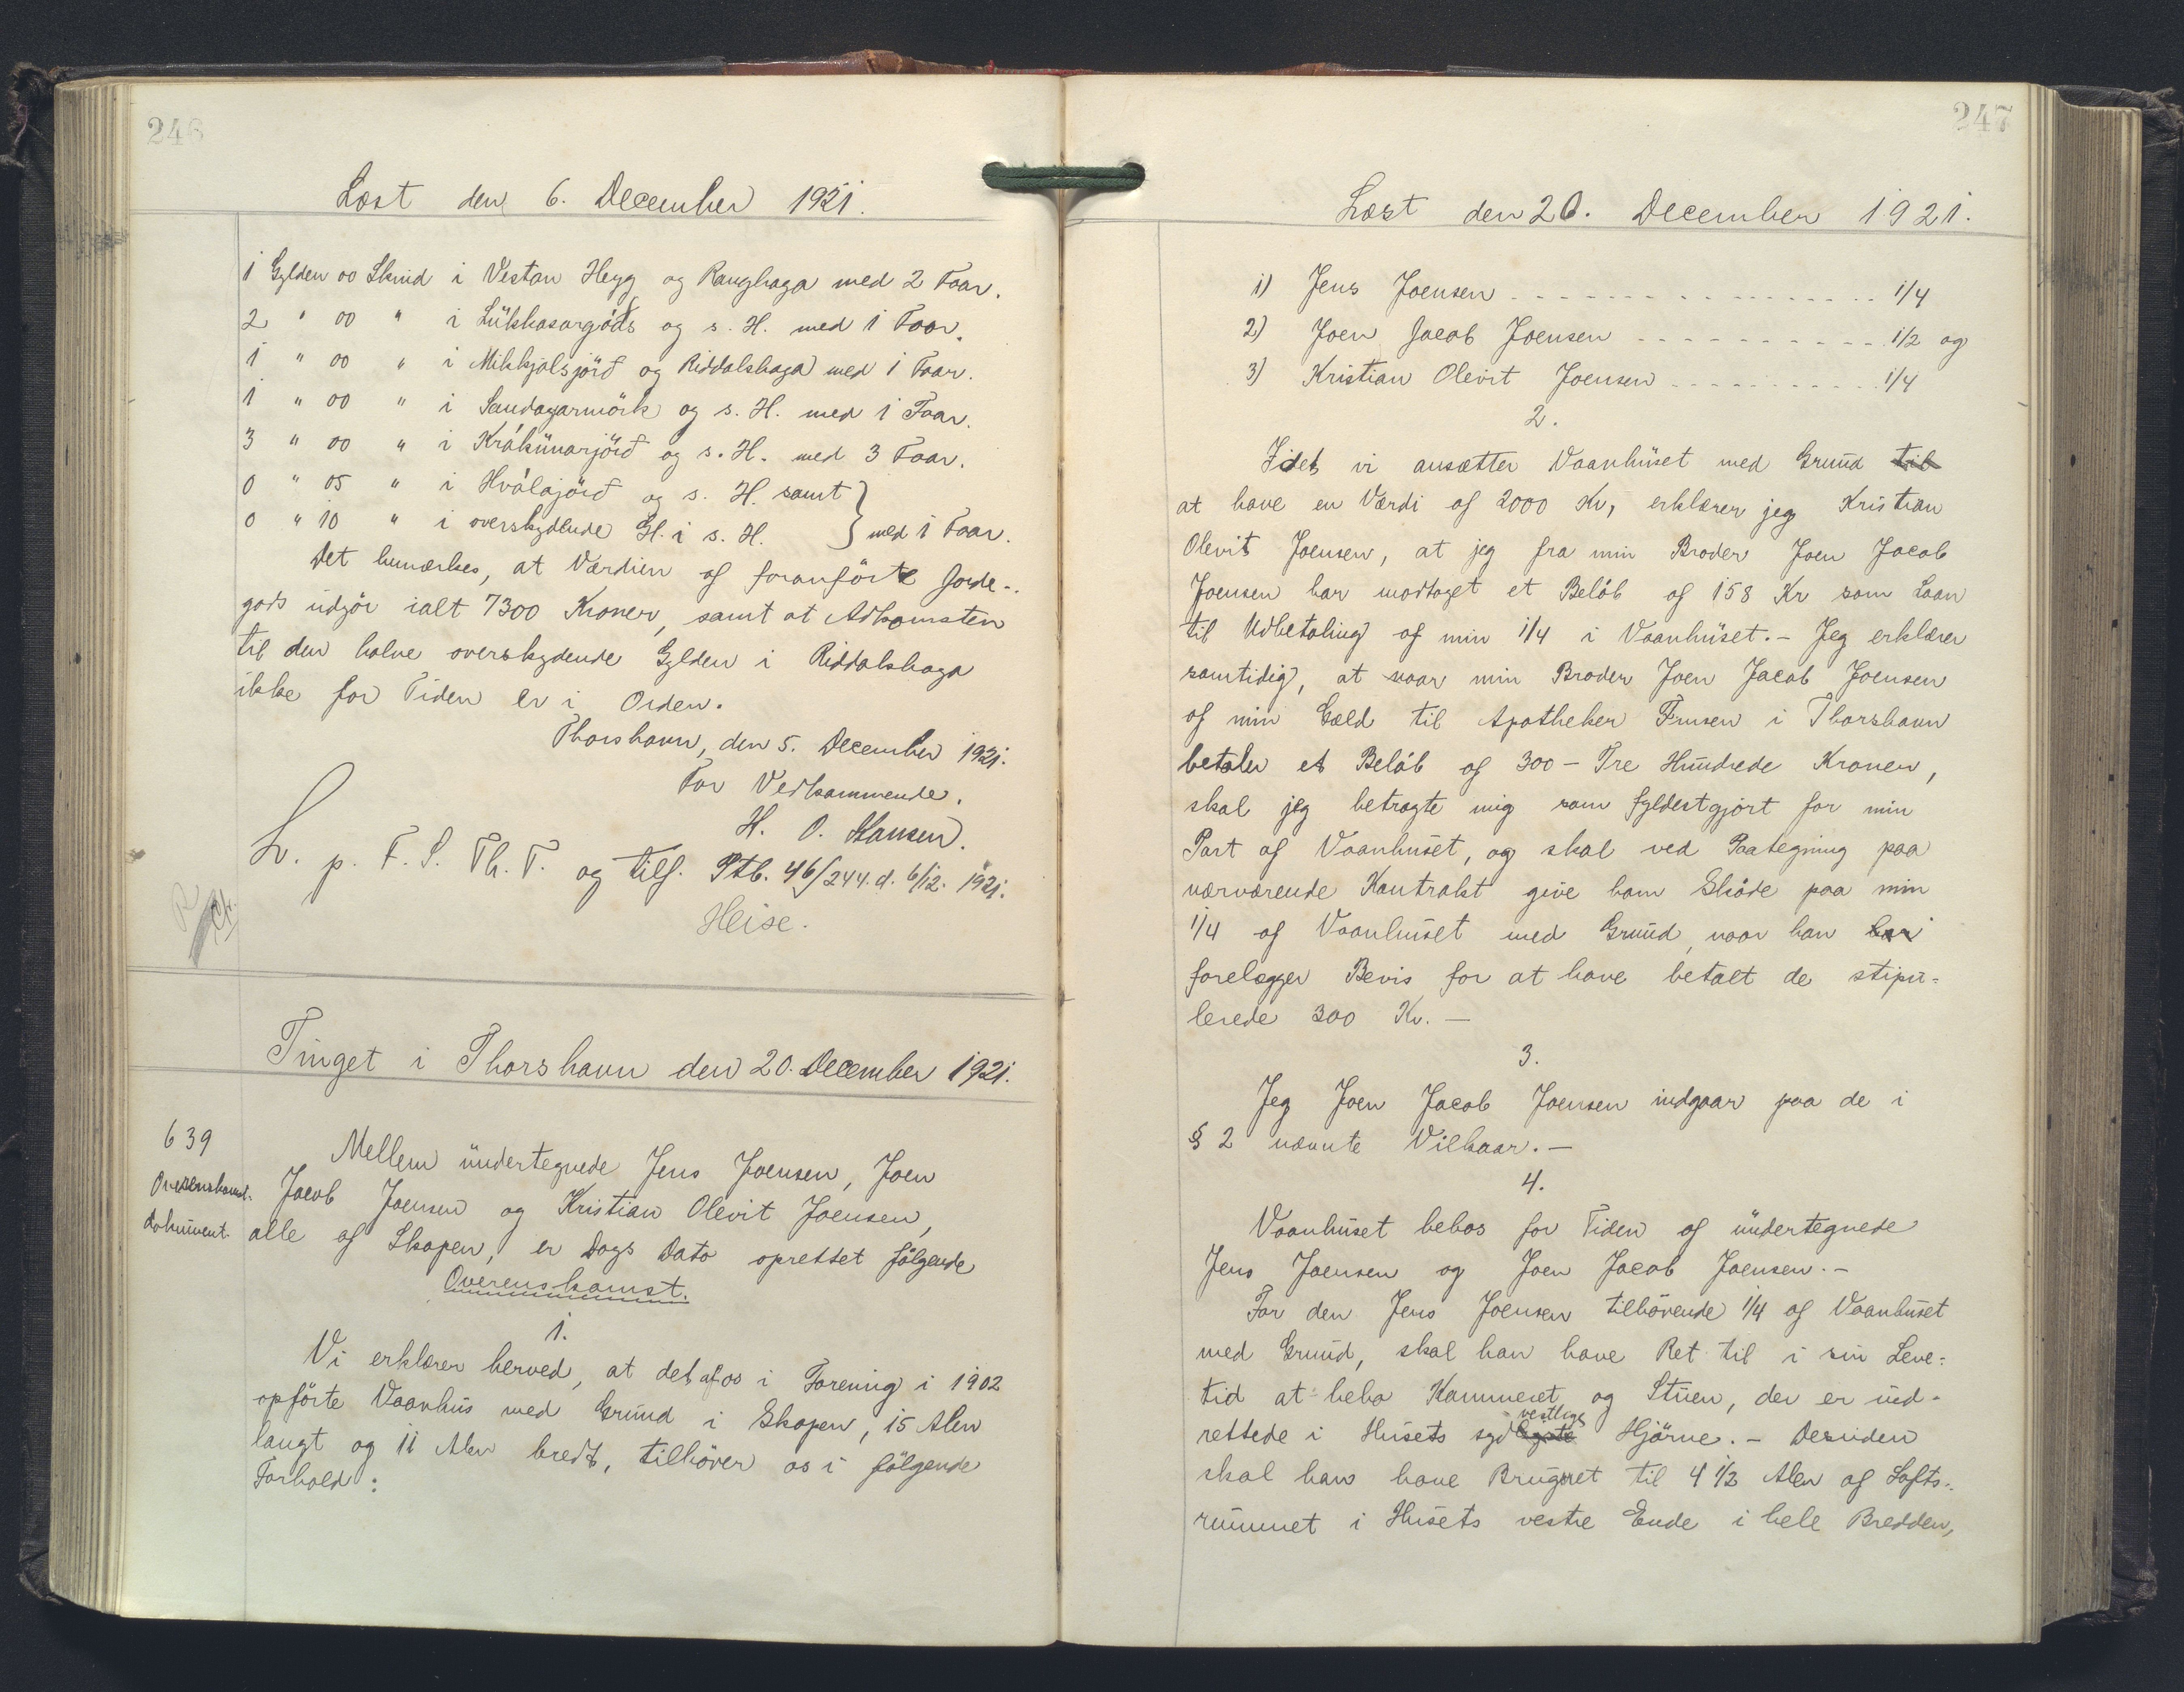 246
Læst den 6. December 1921.
1 Gylden 00 Skind i Vestan Heyg og Ranghaga med 2 Faar.
2 " 00 " i Lükkasargóds og s. H. med 1 Faar.
1 " 00 " i Mikkjalsjörð og Riddalshaga med 1 Faar.
1 " 00 " i Sandagarmörk og s. H. med 1 Faar.
3 " 00 " i Krákünarjörð og s. H. med 3 Faar.
0 " 05 " i Hválajörð og s. H. samt
0 " 10 " i overskydende H. i s. H. } med 1 Faar.
Det bemærkes, at Værdien af foranförte Jorde-
gods udgör ialt 7300 Kroner, samt at Adkomsten
til den halve overskydende Gylden i Riddalshaga
ikke for Tiden er i Orden.
Thorshavn, den 5. December 1921.
For Vedkommende.
H. O. Hansen.
L. p. F. S. Th. T. og tilf. Ptb. 46/244. d. 6/12. 1921.
Heise.
Tinget i Thorshavn den 20. December 1921.
639
Overenskomst-
dokument.
Mellem undertegnede Jens Joensen, Joen
Jacob Joensen og Kristian Olevit Joensen,
alle af Skopen, er Dags Dato oprettet fölgende
Overenskomst.
1.
Vi erklærer herved, at det af os i Forening i 1902
opförte Vaanhus med Grund i Skopen, 15 Alen
langt og 11 Alen bredt, tilhörer os i fölgende
Forhold:
247
Læst den 20. December 1921.
1) Jens Joensen - - - - - - - - - - 1/4
2) Joen Jacob Joensen - - - - - - - - - - 1/2 og
3) Kristian Olevit Joensen - - - - - - - - - - 1/4
2.
Idet vi ansætter Vaanhuset med Grund til
at have en Værdi af 2000 Kr, erklærer jeg Kristian
Olevit Joensen, at jeg fra min Broder Joen Jacob
Joensen har modtaget et Belöb af 158 Kr som Laan
til Udbetaling af min 1/4 i Vaanhuset. - Jeg erklærer
samtidig, at naar min Broder Joen Jacob Joensen
af min Gæld til Apotheker Frusen i Thorshavn
betaler et Belöb af 300 - Tre Hundrede Kroner,
skal jeg betragte mig som fyldestgjort for min
Part af Vaanhuset, og skal ved Paategning paa
nærværende Kontrakt give ham Sköde paa min
1/4 af Vaanhuset med Grund, naar han har
forelægger Bevis for at have betalt de stipu-
lerede 300 Kr. -
3.
Jeg Joen Jacob Joensen indgaar paa de i
§ 2 nævnte Vilkaar. -
4.
Vaanhuset bebos for Tiden af undertegnede
Jens Joensen og Joen Jacob Joensen. -
For den Jens Joensen tilhörende 1/4 af Vaanhuset
med Grund, skal han have Ret til i sin Leve-
tid at bebo Kammeret og Stuen, der er ind-
vestlige
rettede i Husets syd Hjörne. - Desuden
skal han have Brugsret til 4 1/2 Alen af Lofts-
rummet i Husets vestre Ende i hele Bredden,